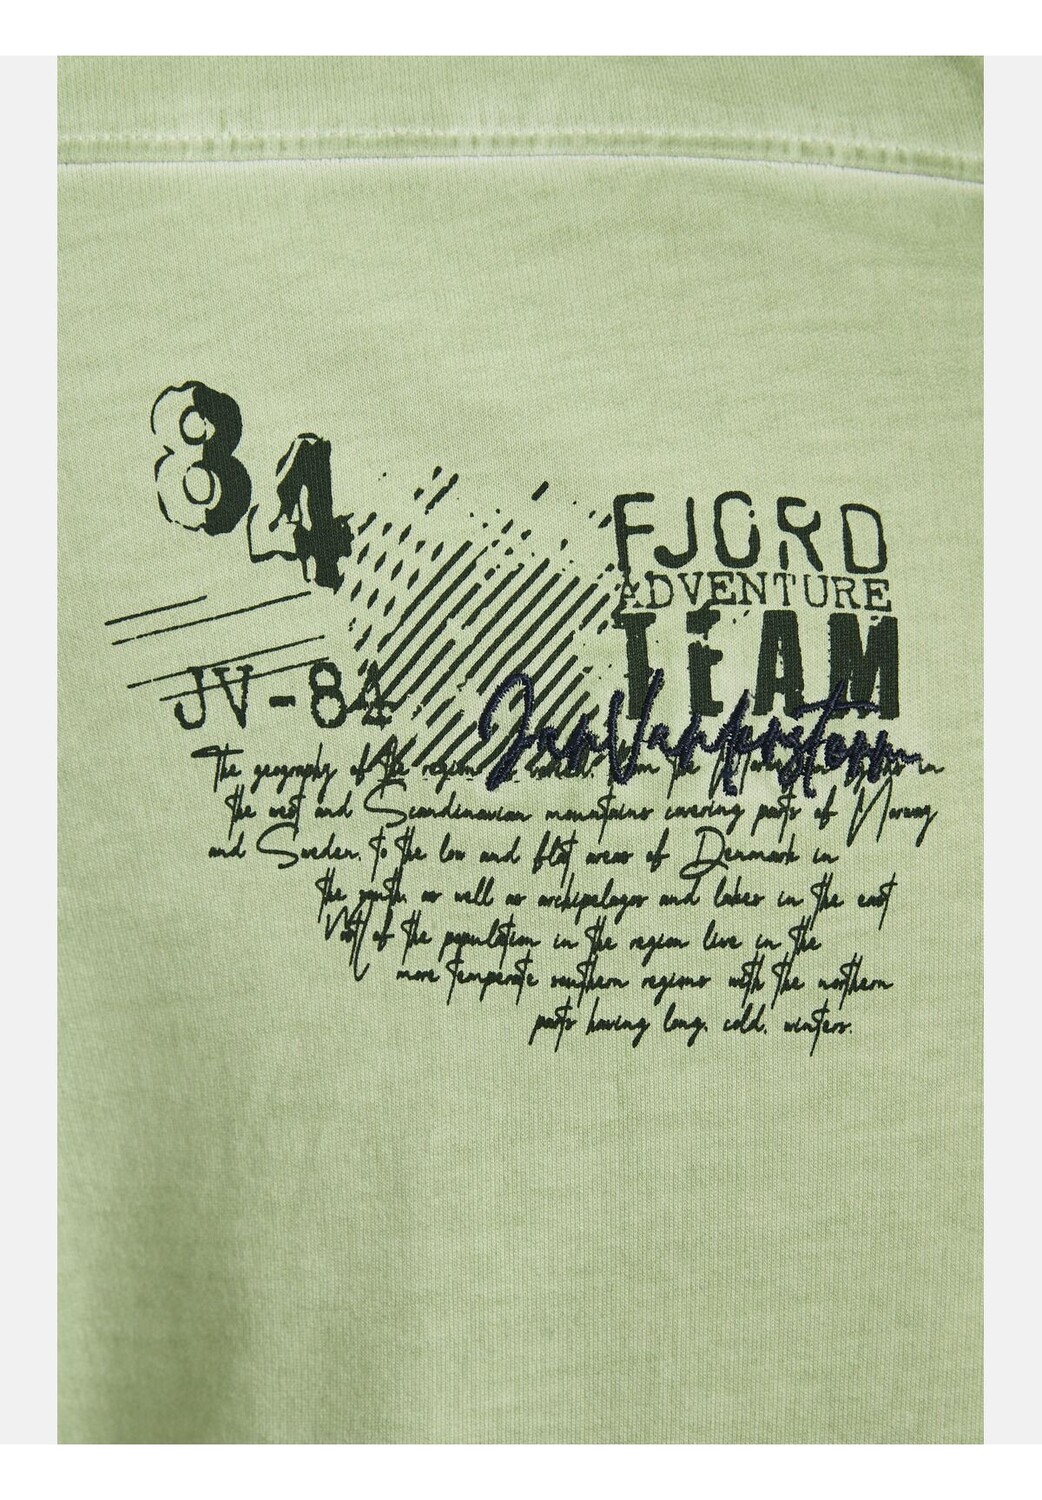 84
FJORD
ADVENTURE
TEAM
JV-84
Jan Vanderstorm
The geography of the region is varied, from the Norwegian fjords in
the west and Scandinavian mountains covering parts of Norway
and Sweden, to the low and flat areas of Denmark in
the south, as well as archipelagos and lakes in the east
Most of the population in the region live in the
more temperate southern regions with the northern
parts having long, cold, winters.